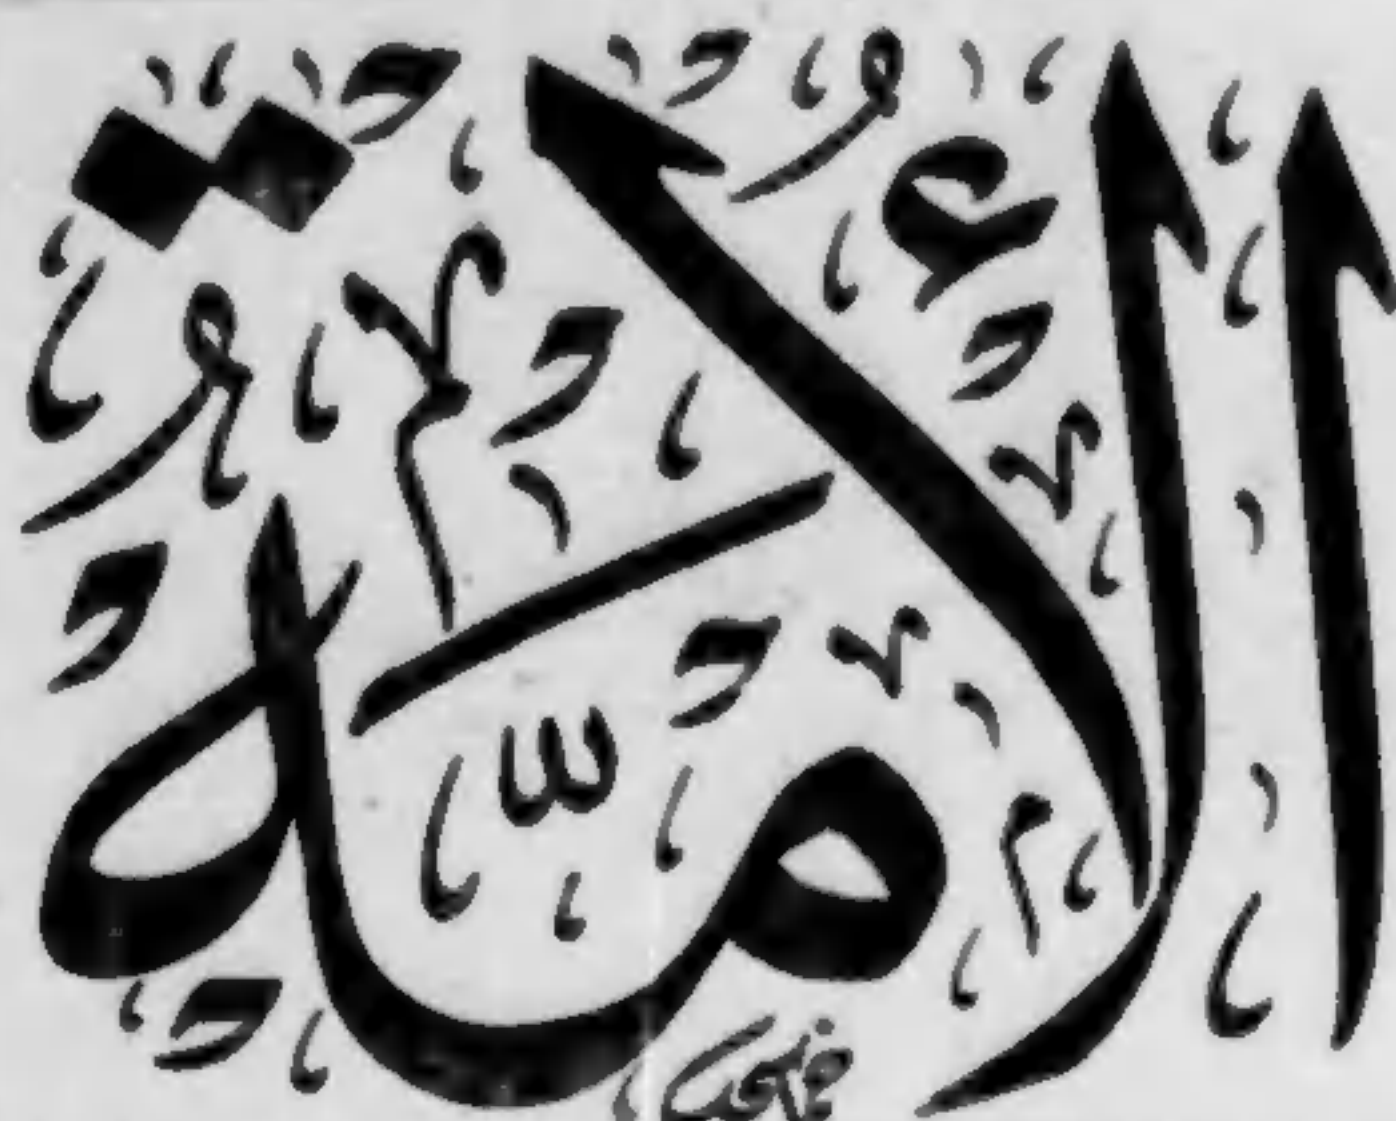 الأُمَّة